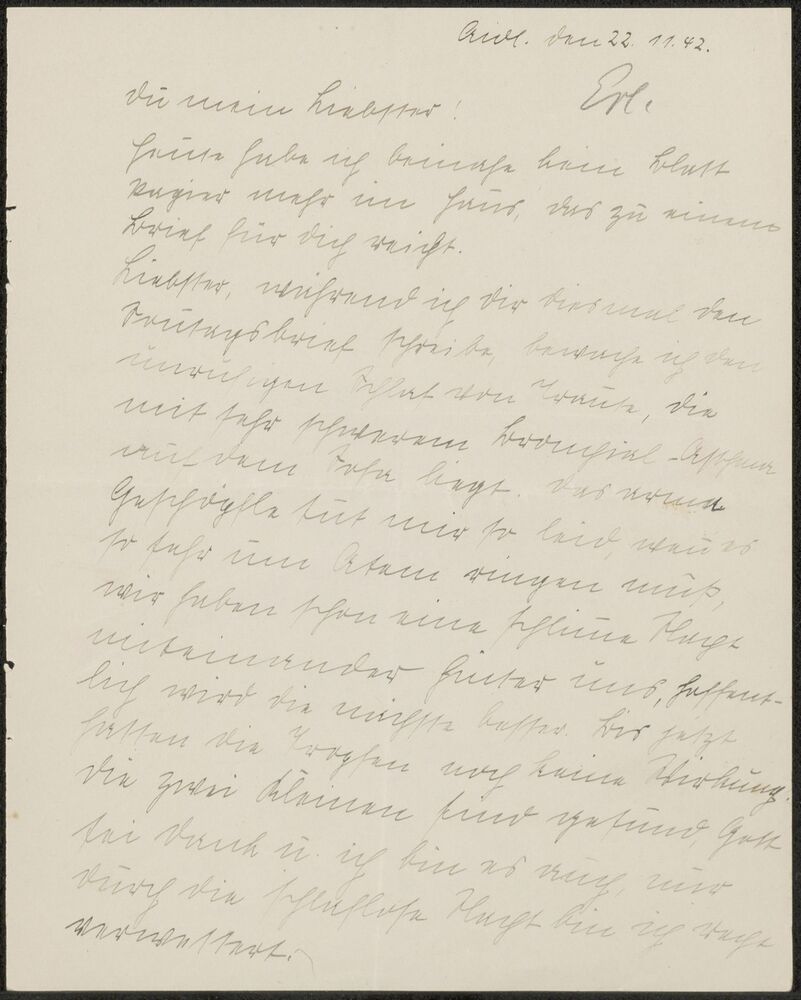 Aidl. den 22. 11. 42.
Erl.
Du mein Liebster!
Heute habe ich beinahe kein Blatt
Papier mehr im Haus, das zu einem
Brief für Dich reicht.
Liebster, während ich Dir diesmal den
Sontagsbrief schreibe, bewache ich den
unruhigen Schlaf von Traute, die
mit sehr schwerem Bronchial-Asthma
auf dem Sofa liegt. Das arme
Geschöpfle tut mir so leid, wen es
so sehr um Atem ringen muß,
wir haben schon eine schlime Nacht
miteinander hinter uns, hoffent-
lich wird die nächste besser. Bis jetzt
hatten die Tropfen noch keine Wirkung.
Die zwei Kleinen sind gesund, Gott
sei Dank u. ich bin es auch, nur
durch die schlaflose Nacht bin ich recht
verwestert.